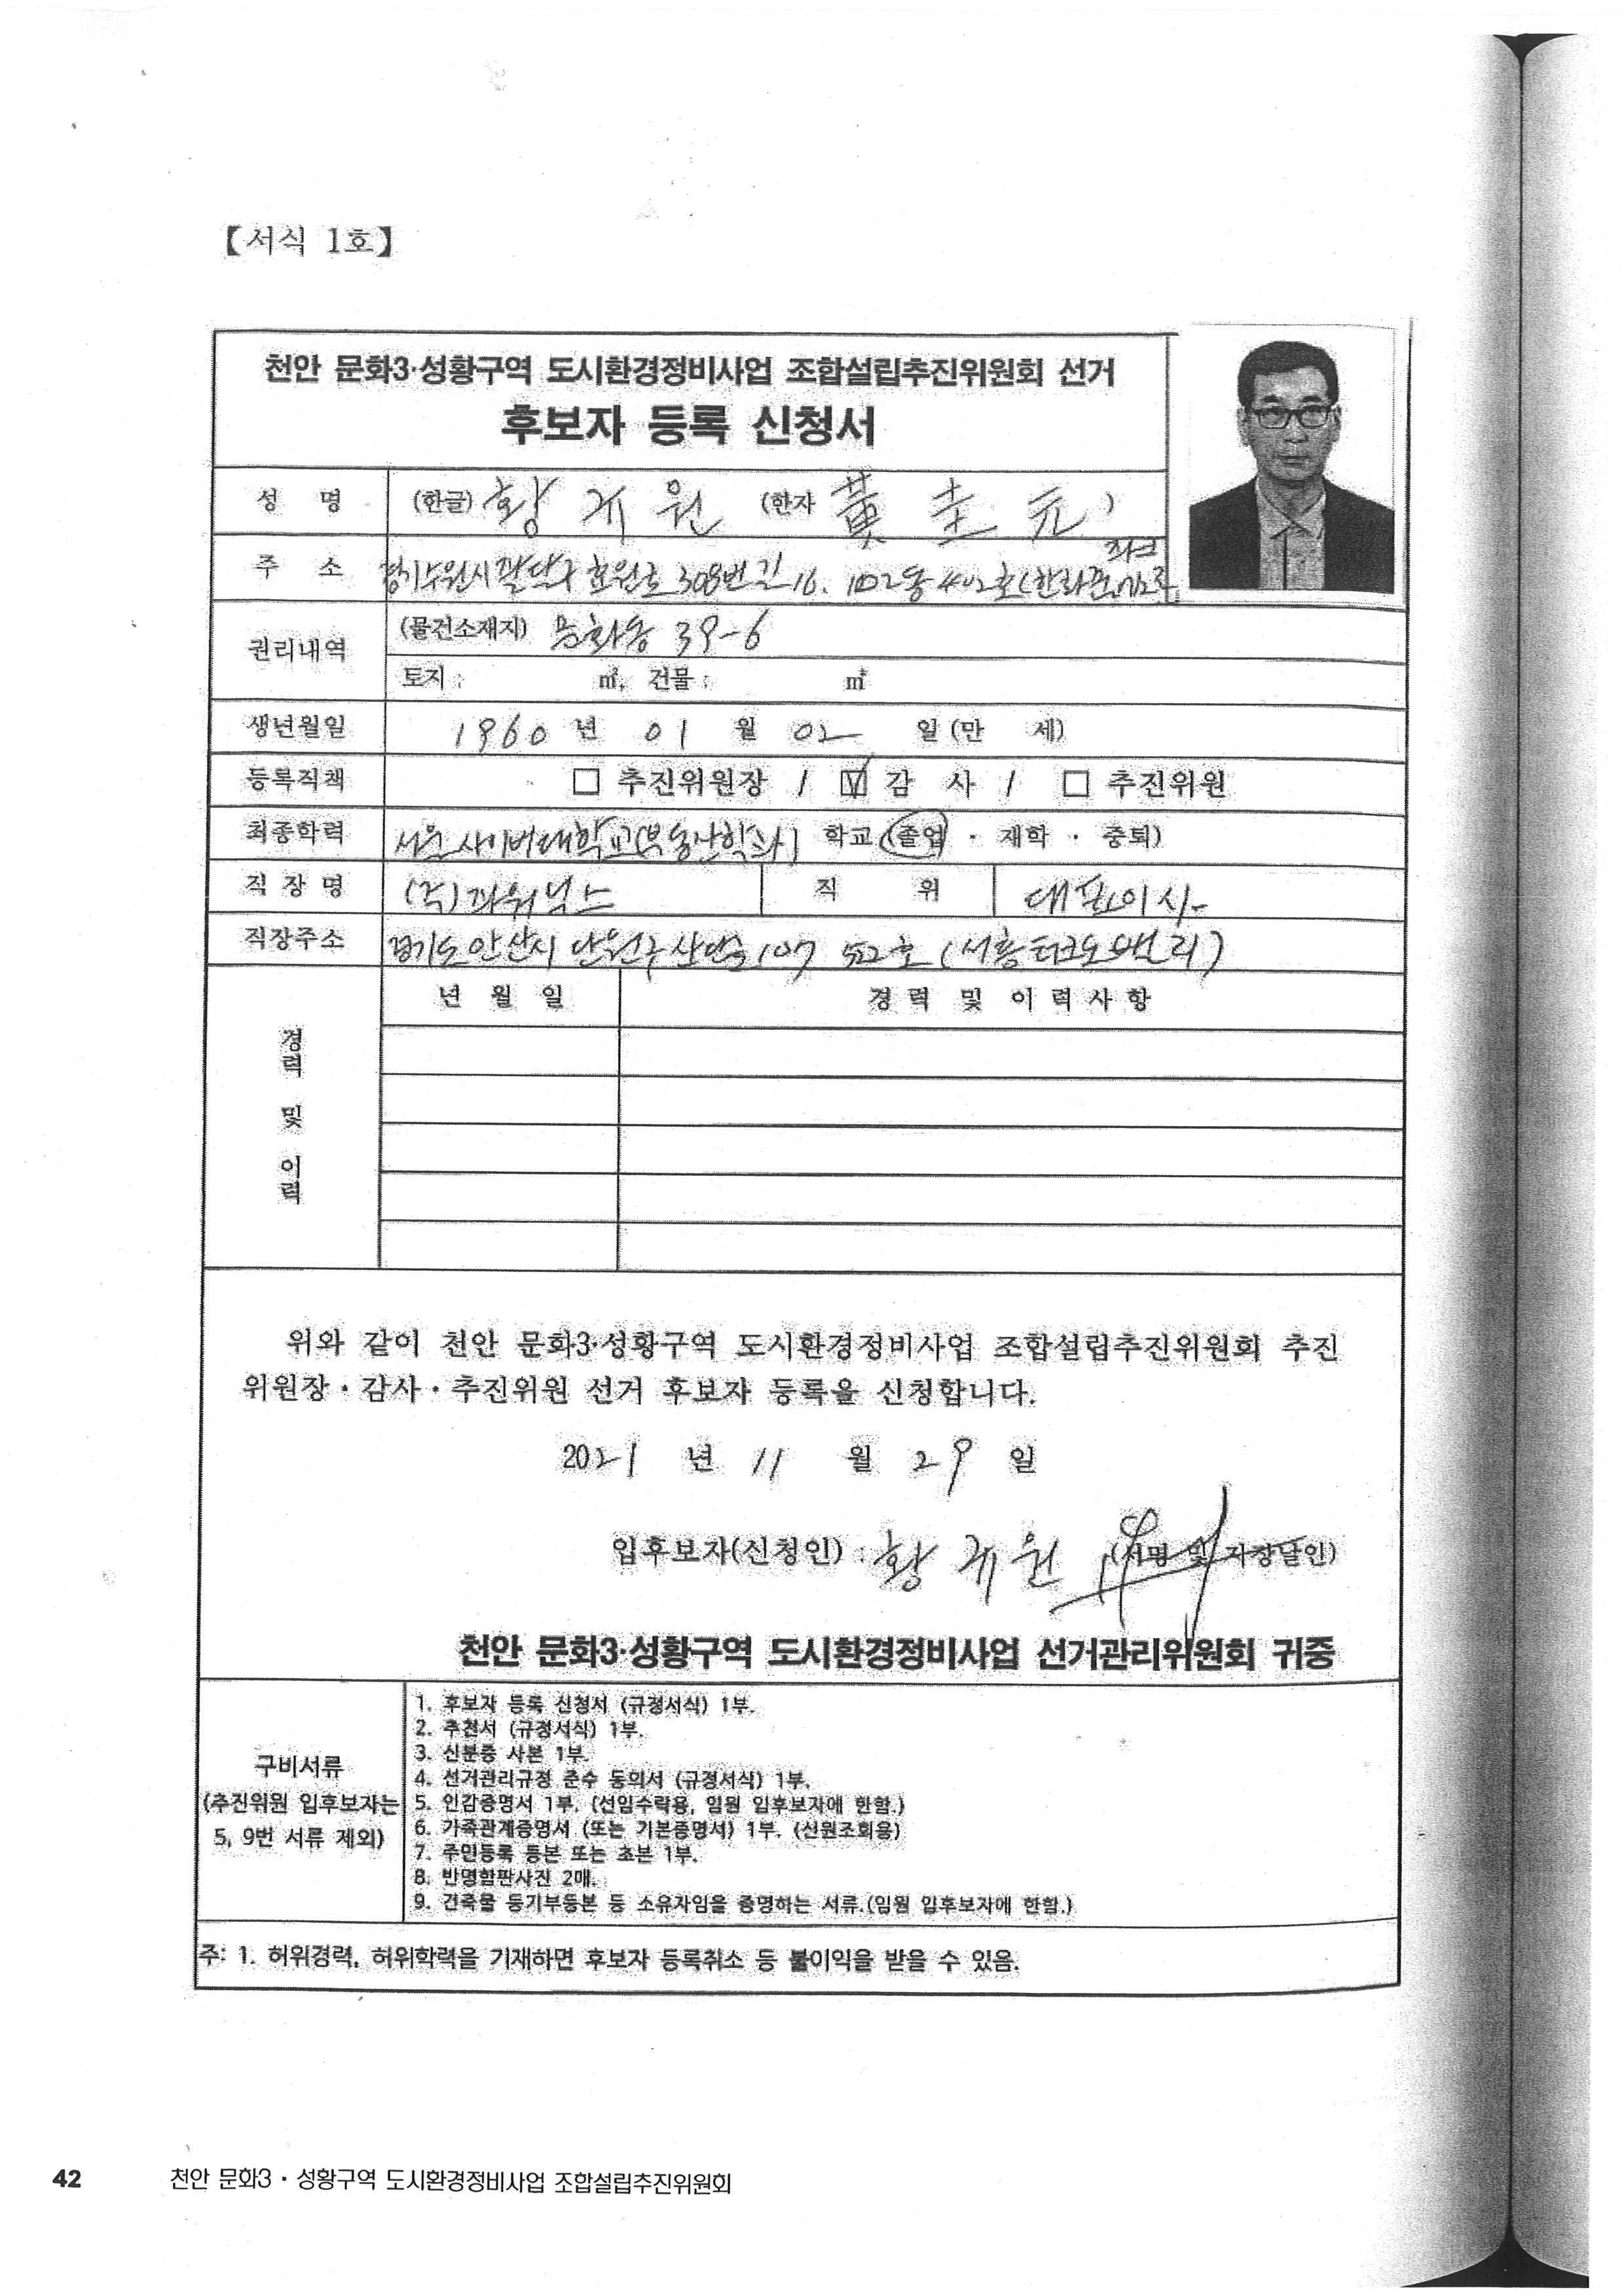 【서식 1호】
천안 문화3·성황구역 도시환경정비사업 조합설립추진위원회 선거
후보자 등록 신청서
성 명 (한글) 황 규 원 (한자 黃 圭 元 )
주 소 경기 수원시 팔달구 효원로 308번길 16. 102동 402호(한라
파크
권리내역 (물건소재지) 문화동 39-6
토지 : ㎡, 건물 : ㎡
생년월일 1960 년 01 월 02 일 (만 세)
등록직책 □ 추진위원장 / ☑ 감 사 / □ 추진위원
최종학력 서울사이버대학교(부동산학과) 학교 (졸업 · 재학 · 중퇴)
직 장 명 (주)파워닉스 직 위 대표이사
직장주소 경기도 안산시 단원구 산단로 107 522호 (서흥테크노밸리)
년 월 일 경 력 및 이 력 사 항
경력 및 이력
위와 같이 천안 문화3·성황구역 도시환경정비사업 조합설립추진위원회 추진
위원장 · 감사 · 추진위원 선거 후보자 등록을 신청합니다.
2021 년 11 월 29 일
입후보자(신청인) : 황 규 원 (서명 및 지장날인)
천안 문화3·성황구역 도시환경정비사업 선거관리위원회 귀중
구비서류
(추진위원 입후보자는
5, 9번 서류 제외)
1. 후보자 등록 신청서 (규정서식) 1부.
2. 추천서 (규정서식) 1부.
3. 신분증 사본 1부.
4. 선거관리규정 준수 동의서 (규정서식) 1부.
5. 인감증명서 1부. (선임수락용, 임원 입후보자에 한함.)
6. 가족관계증명서 (또는 기본증명서) 1부. (신원조회용)
7. 주민등록 등본 또는 초본 1부.
8. 반명함판사진 2매.
9. 건축물 등기부등본 등 소유자임을 증명하는 서류.(임원 입후보자에 한함.)
주: 1. 허위경력, 허위학력을 기재하면 후보자 등록취소 등 불이익을 받을 수 있음.
42 천안 문화3 · 성황구역 도시환경정비사업 조합설립추진위원회